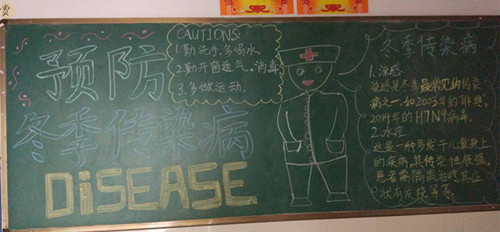 预防
冬季传染病
DiSEASE
CAUTIONS:
1.勤洗手,多喝水
2.勤开窗透气.消毒
3.多做运动.
冬季传染病
1.流感.
流感是冬季最常见的传染
病之一.如2003年的非典,
2014年的H7N9病毒.
2.水痘
这是一种多发于儿童身上
的疾病,其传染性很强,
患者需隔离治疗.其症
状有发烧等等.